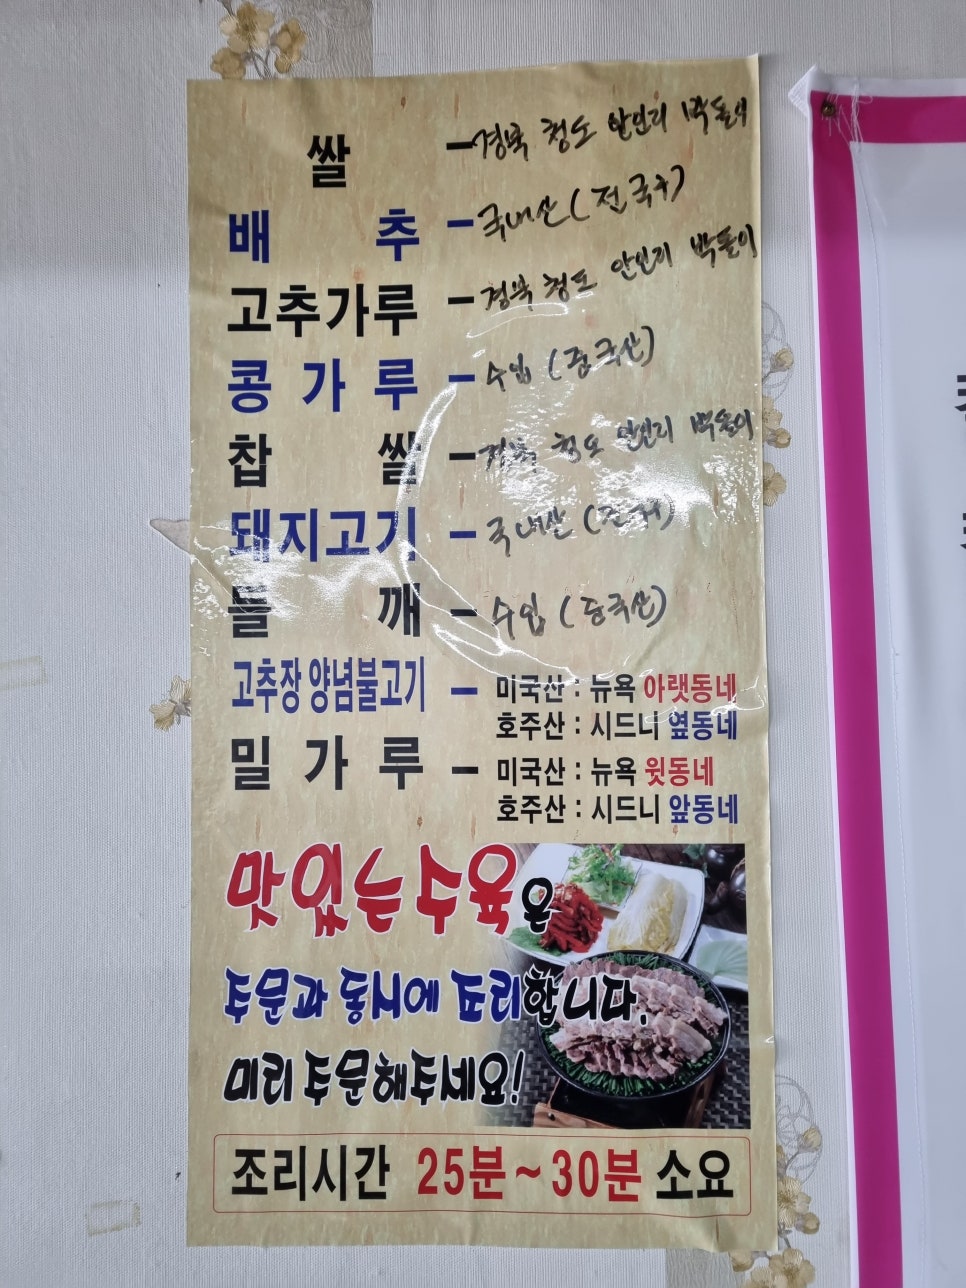 쌀 - 경북 청도 안인리 박돌이
배 추 - 국내산 (전국구)
고추가루 - 경북 청도 안인리 박돌이
콩 가 루 - 수입 (중국산)
찹 쌀 - 경북 청도 안인리 박돌이
돼지고기 - 국내산
들 깨 - 수입 (중국산)
고추장 양념불고기 - 미국산 : 뉴욕 아랫동네
호주산 : 시드니 옆동네
밀 가 루 - 미국산 : 뉴욕 윗동네
호주산 : 시드니 앞동네
맛있는수육은
주문과 동시에 조리합니다.
미리 주문해주세요!
조리시간 25분~30분 소요